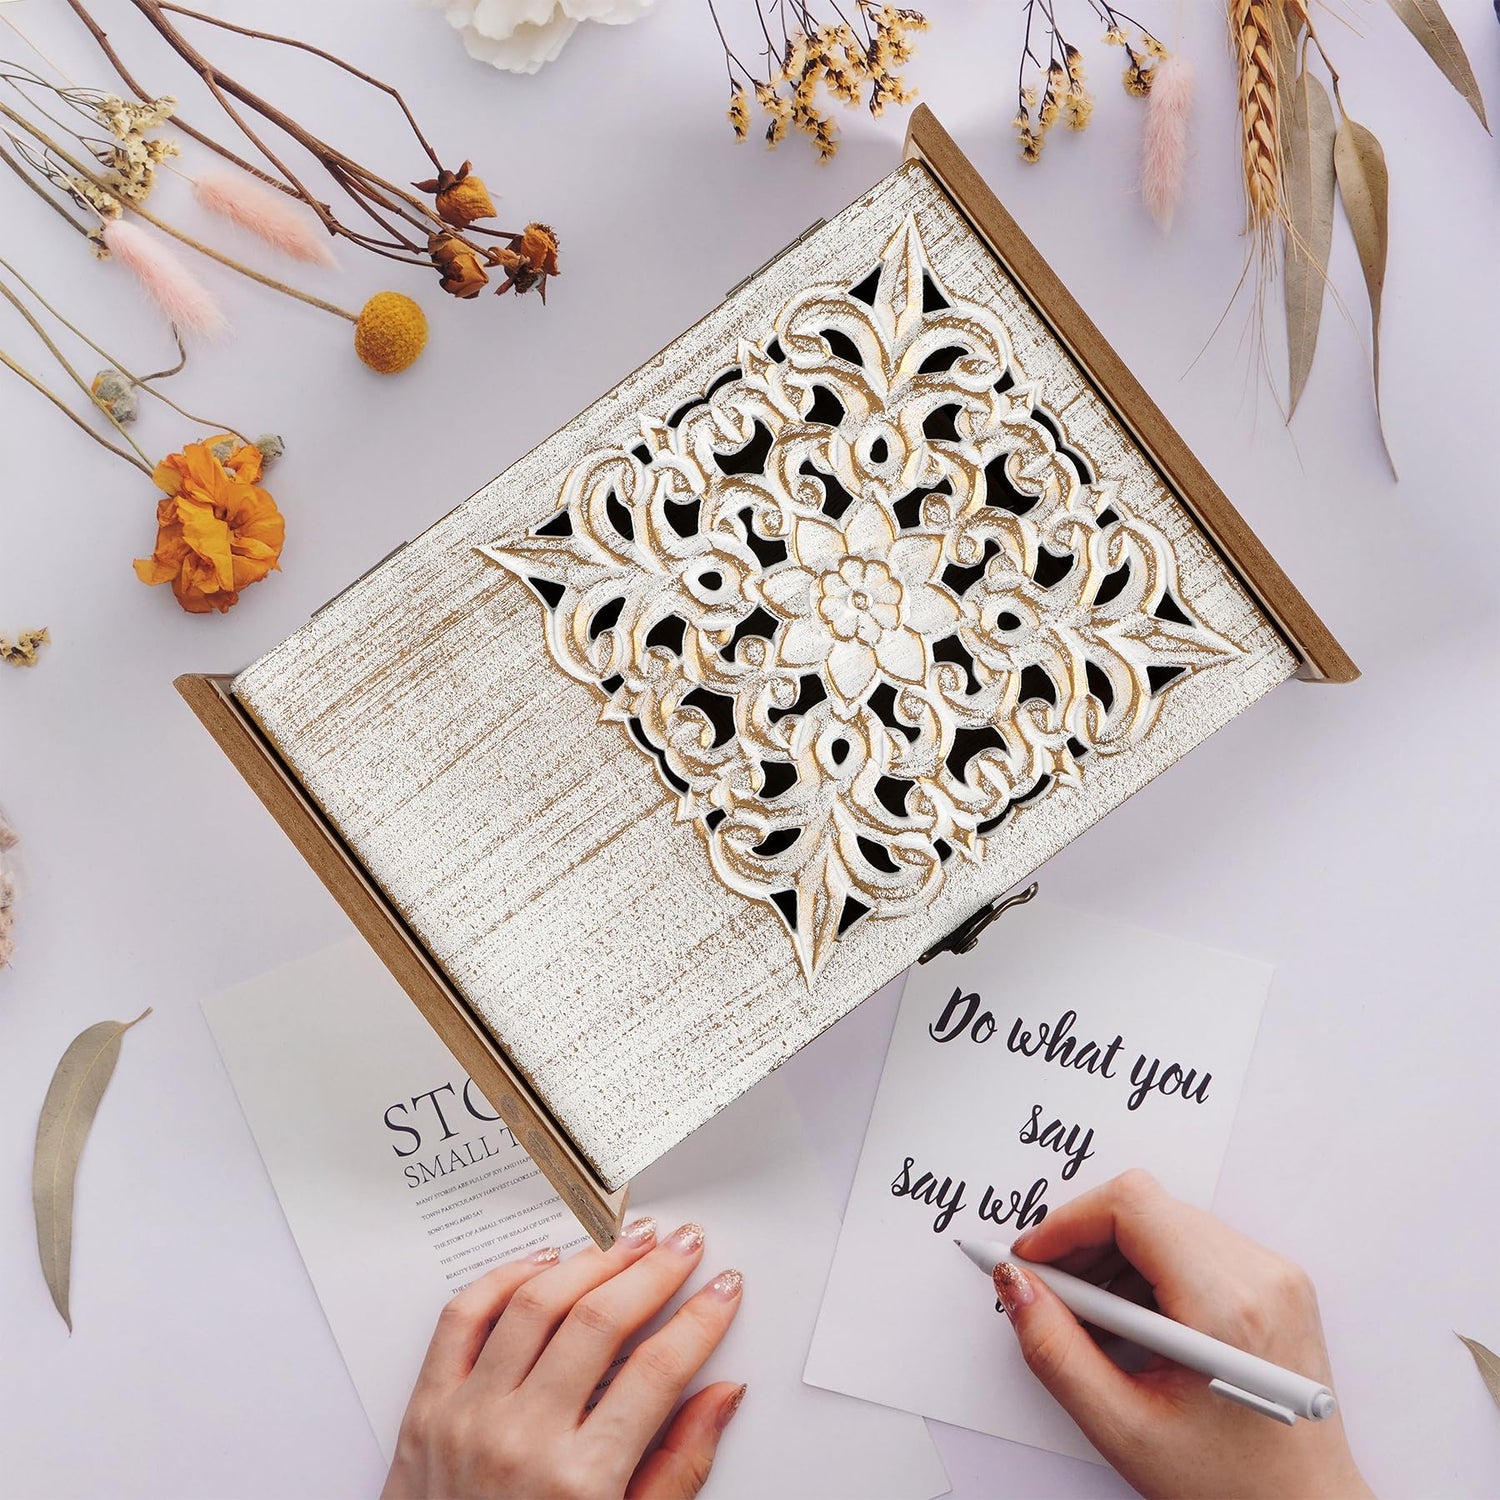 STO
SMALL T
MANY STORIES ARE FULL OF JOY AND HAP
TOWN PARTICULARLY HARVEST LOOKS LIK
SONG SING AND SAY
THE STORY OF A SMALL TOWN IS REALLY GOOD
THE TOWN TO VISIT THE REALM OF LIFE THE
BEAUTY HERE INCLUDE SING AND SAY GOOD
THE
Do what you
say
say wh